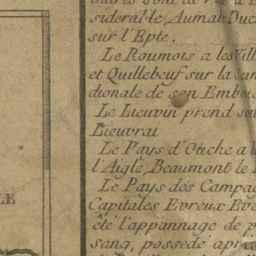 siderable, Aumale Duc
sur l'Epte.
Le Roumois a les Vill
et Quillebeuf sur la
dionale de son Embou
Le Lieuvin prend so
Lieuvrai
Le Pays d'Ouche a
l'Aigle, Beaumont le
Le Pays des Campa
Capitales Evreux Ev
été l'appannage de p
sang, possédé apr
LE